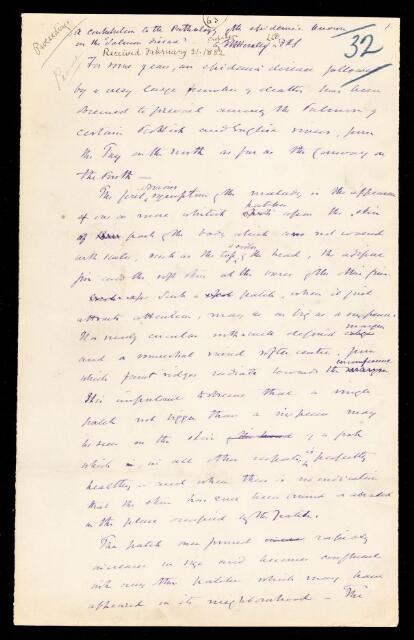 Proceedings
(63)
32
A contribution to the Pathology of the epidemic known
on the "Salmon disease" by Professor T. H. Huxley LLD FRS
Received February 21. 1882
For some years, an epidemic disease followed
by a very large number of deaths, has been
observed to prevail among the Salmon of
certain Scottish and English rivers, from
the Tay on the north as far as the Conway on
the South —
The first obvious symptom of the malady is the appearance
of one or more whitish patches upon the skin
of parts of the body which are not covered
with scales, such as the top & sides of the head, the adipose
fin and the soft skin at the bases of the other fins
Such a patch, when it first
attracts attention, may be as big as a sixpence.
It is nearly circular with well defined margin
and a somewhat raised softer centre, from
which faint ridges radiate towards the circumference
It is important to observe that a single
patch not bigger than a sixpence may
be seen on the skin of a fish
which is in all other respects perfectly
healthy — and when there is no indication
that the skin has ever been bruised or abraded
in the place occupied by the patch.
The patch once formed rapidly
increases in size and becomes confluent
with any other patches which may have
appeared in its neighbourhood — The